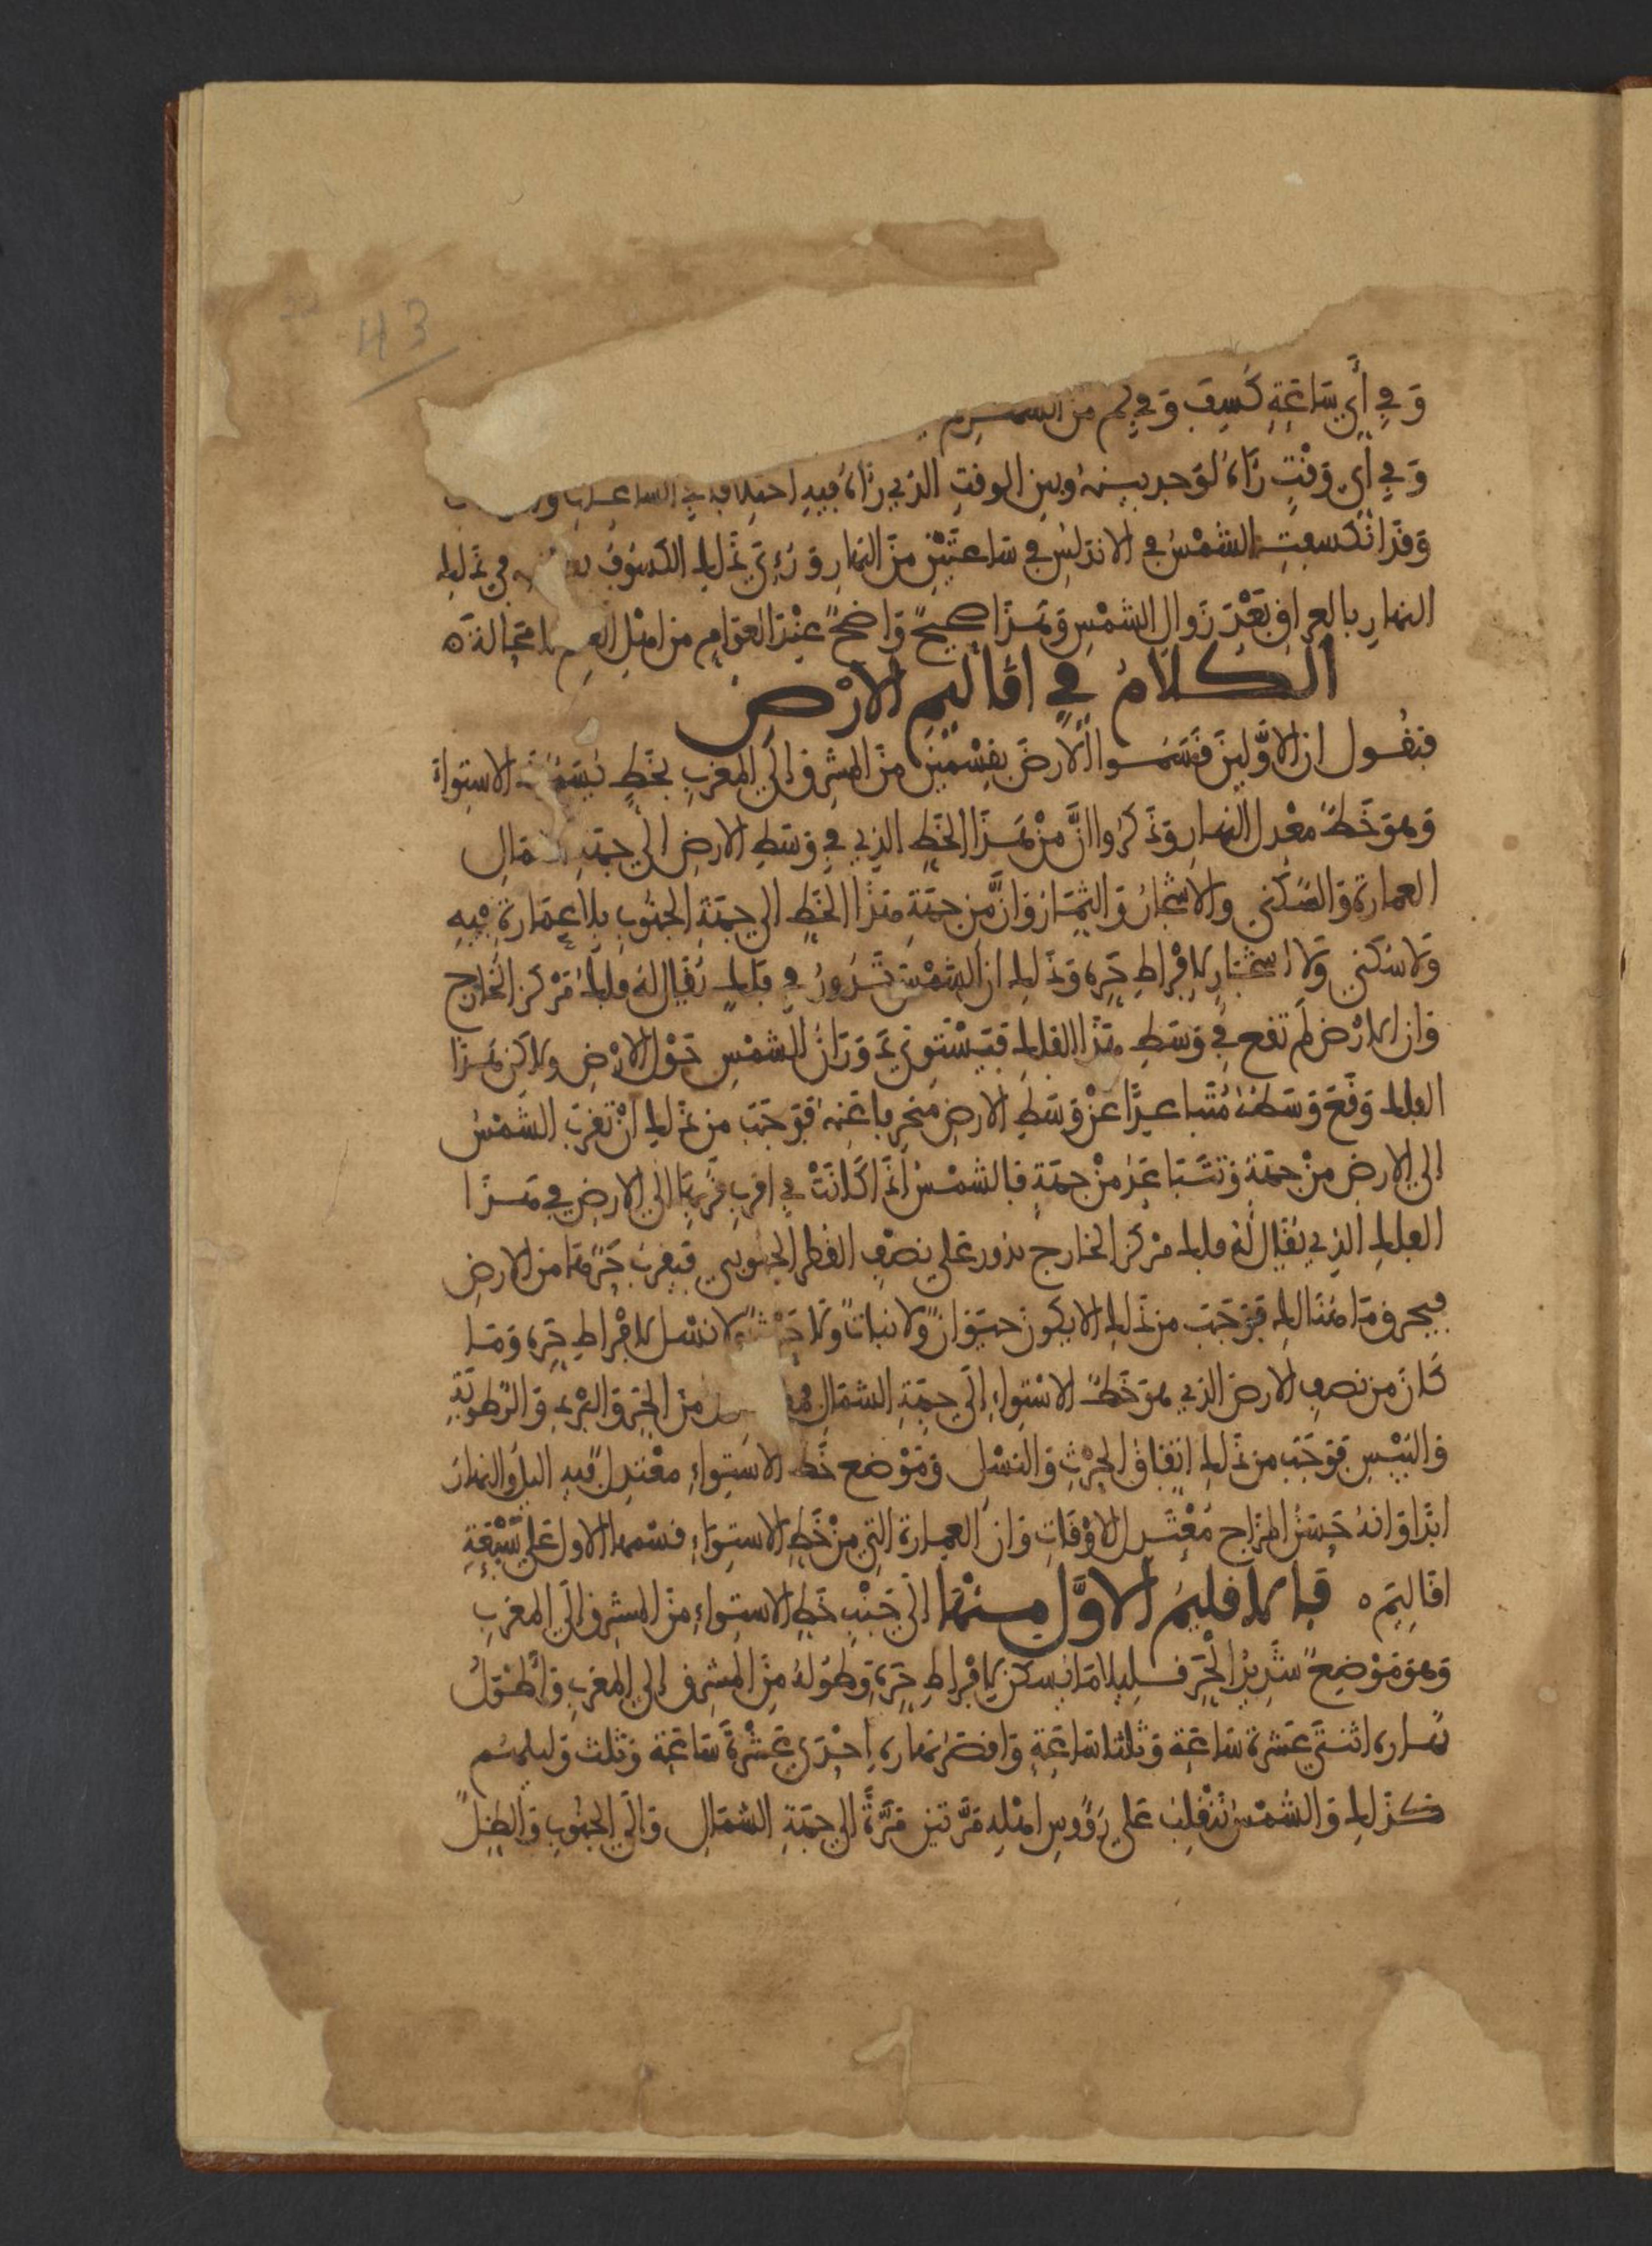 43
وَفِي أَيِّ سَاعَةٍ كُسِفَ وَفِي كم من
وَفِي أَيِّ وَقْتٍ رَآهُ لوَجد بينه وبين الوقتِ الذي رَآهُ فيه اختلافا في
وَقَد انْكَسَفتِ الشمْسُ في الاندلس في سَاعَتَيْنِ مِنَ النهارِ وَرُءِيَ ذَلِك الكسُوفُ في ذَلِك
النهارِ بالعراق بَعْدَ زَوالِ الشمْسِ وَهَذَا صحيحٌ وَاضحٌ عِنْدَ العَوَامِ من اهْلِ العِلم لا محالةَ
الكلامُ في اقاليم الارْض
فنقُول ان الاوَّلينَ قسَمُوا الارضَ بِقِسْمَيْنِ مِنَ المشرق الَى المغربِ بخَطٍّ يُسَمى الاستِواء
وَهوَ خَطُّ معْدل النهارِ وَذَكرُوا انَّ مِنْ هَذَا الخَطِّ الذِي في وَسَطِ الارضِ الى جهَةِ الشمَالِ
العمارة وَالسُّكنى والاشجَارُ وَالثمَارُ وَانَّ من جهَةِ هَذَا الخَطِّ الى جهَةِ الجنُوبِ بلا عِمَارة فيه
وَلا سُكنى وَلا اشجَار لافْرَاطِ حَرِّه وَذَلِك ان الشمْسَ تَدُورُ في فلك يُقَالُ لهُ فلكُ مَرْكَز الخارج
وَان الارْض لم تقع في وَسَطِ هَذَا الفلك فيَسْتَوي دَوَرَانُ الشمْسِ حَوْل الارْضِ ولاكن هَذَا
الفلك وَقَعَ وَسَطهُ مُتَباعِدًا عَنْ وَسَطِ الارضِ منحرفا عَنهُ فوَجَبَ من ذَلِك انْ تقربَ الشمْسُ
الى الارضِ مِنْ جهَةٍ وَتَتَبَاعَدُ مِنْ جهَةٍ فالشمْسُ اذَا كَانَتْ في اقربِ قُرْبِهَا الَى الارضِ في هَذَا
الفلكِ الذِي يُقَال لهُ فلك مَرْكز الخارج تدُور عَلَى نصْفِ القطر الجنُوبي فيَقربُ جَرْمُهَا من الارضِ
فيحرق مَا هُنَالِك فوَجَبَ من ذَلِك الا يكون حيَوَانٌ وَلا نباتٌ وَلا وَلا نسْل لافْرَاطِ حَرِّه وَمَا
كَانَ من نصفِ الارضِ الذِي هوَ خَطُّ الاسْتِواءِ إلَى جهَةِ الشمَالِ مِنَ الحَرِّ وَالبَرْدِ وَالرُّطوبَةِ
وَاليَبْسِ فوَجَبَ من ذَلِك اتفَاق الحَرْثِ وَالنَسْلِ وَمَوْضع خَطِّ الاسْتِواءِ معْتَدِلٌ فيه الليلُ والنهارُ
ابَدًا وَانهُ حَسَنُ المِزَاج مُعْتَدِل الاوْقَاتِ وَان العمارة التي مِنْ خَطِّ الاستِوَاءِ قسمها الاول عَلى سَبْعَةِ
اقَالِيمَ ه فالاقليمُ الاوَّل مِنْهَا الَى جَنْبِ خَطِّ الاستِوَاءِ مِنَ المشرقِ الَى المَغربِ
وَهوَ مَوْضِعٌ شَدِيدُ الحَرِّ قليلا مَا يُسكن لافْرَاطِ حَرِّهِ وَطوُلهُ مِنَ المشرق الى المغربِ وَأطْوَلُ
نهَاره اثنتَى عَشرة سَاعَة وَثلثا سَاعَةٍ وَاقصَرُ نهاره احْدَى عَشْرَةَ سَاعَة وَثلث وَليلهُم
كذَلِك وَالشمْسُ تَنْقَلِبُ عَلى رُؤُوسِ اهْلِهِ مَرَّتين مَرَّةً الى جهَةِ الشمَالِ وَالَى الجنُوبِ وَالظِلُّ